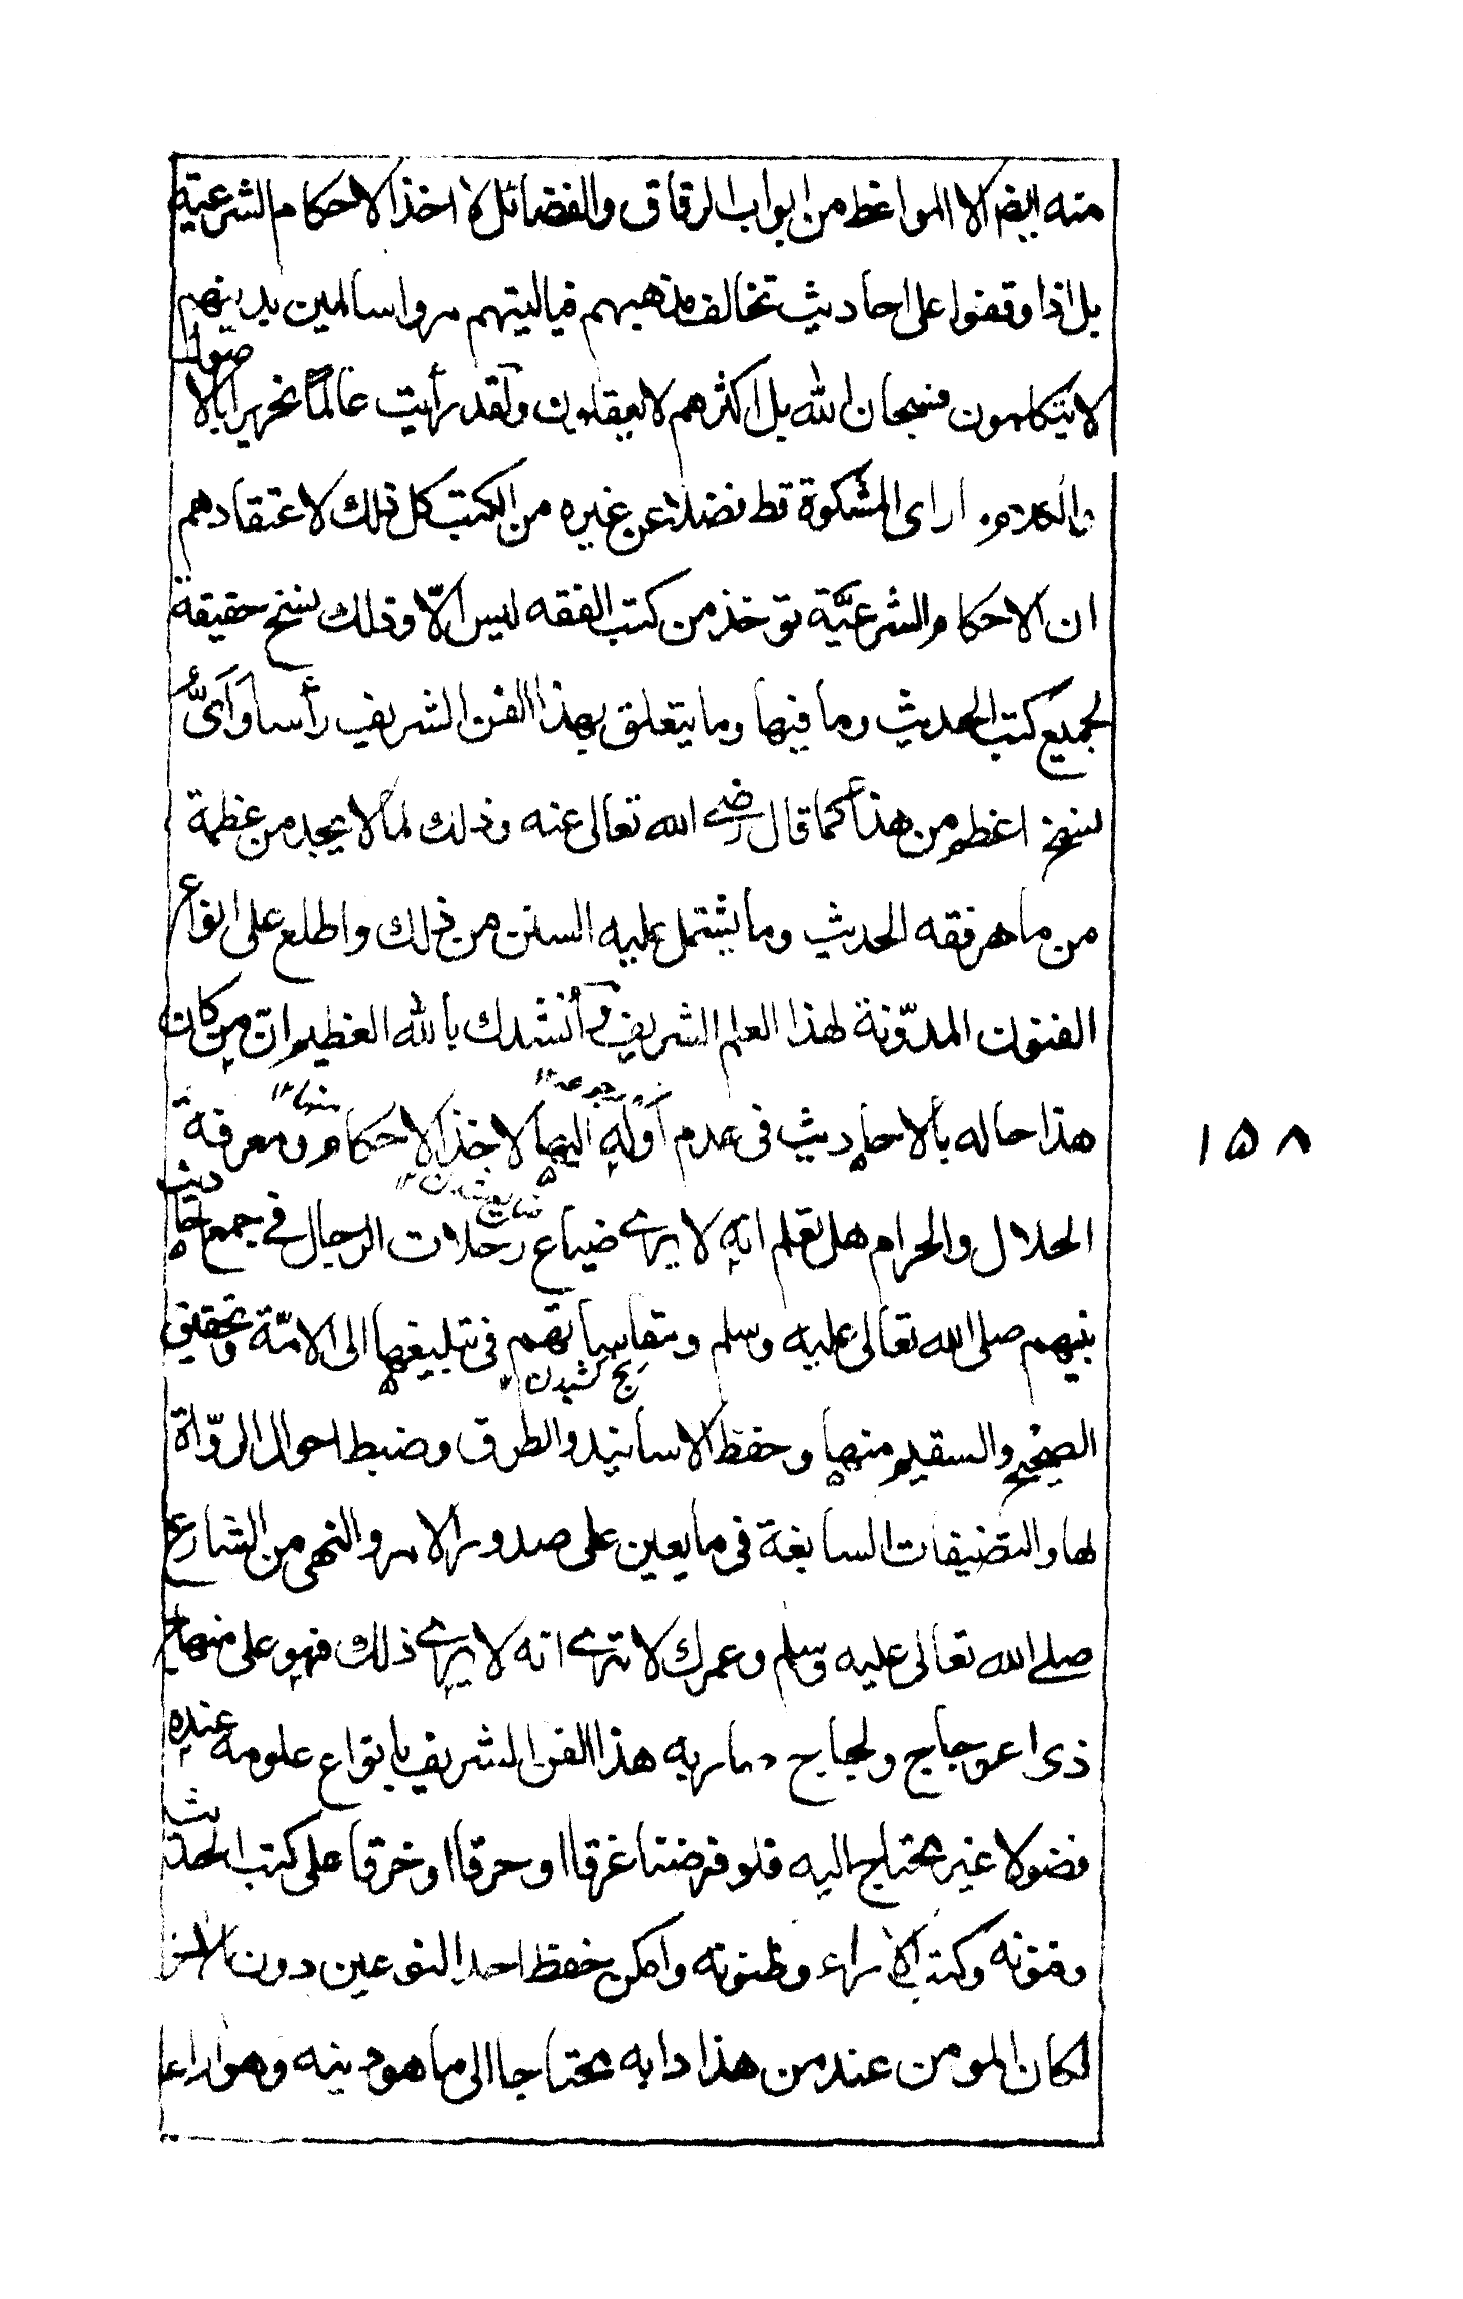 منه ايضا الا المواعظ من ابواب الرقاق والفضائل لا اخذ الاحكام الشرعية
بل اذا وقفوا على احاديث تخالف مذهبهم فياليتهم مروا سالمين بدينهم
لا يتكلمون فسبحان الله بل اكثرهم لا يعقلون ولقد رأيت عالمًا نحريرا بالاصول
والكلام ما راى المشكوة قط فضلا عن غيره من الكتب كل ذلك لاعتقادهم
ان الاحكام الشرعيّة توخذ من كتب الفقه ليس الّا وذلك نسخ حقيقة
لجميع كتب الحديث وما فيها وما يتعلق بهذا الفن الشريف رأسا وَاَىُّ
نسخ اعظم من هذا كما قال رضي الله تعالى عنه وذلك لما لا يجد من عظمة
من ماهر فقه الحديث وما يشتمل عليه السنن من ذلك واطلع على انواع
الفنون المدوّنة لهذا العلم الشريف وأنشدك بالله العظيم انّ من كان
هذا حاله بالاحاديث فى عدم اَوْلِه اليها لاخذ الاحكام ومعرفة
الحلال والحرام هل تعلم انه لا يرى ضياع رحلات الرجال في جمع احاديث
نبيهم صلى الله تعالى عليه وسلم ومقاسياتهم فى تبليغها الى الامّة وتحقيق
رنج كشيدن
الصحيح والسقيم منها وحفظ الاسانيد والطرق وضبط احوال الروّاة
لها والتصنيفات السابغة فى ما يعين على صدور الامر والنهى من الشارع
صلى الله تعالى عليه وسلم وعمرك لا ترى انه لا يرى ذلك فهو على منهاج
ذى اعوجاج ولجاج ما ربه هذا الفن الشريف بانواع علومه عنده
فضولا غير محتاج اليه فلو فرضنا غرقا او حرقا او خرقا على كتب الحديث
وفنونه وكتب الآراء وظنونه وامكن حفظ احد النوعين دون الآخر
لكان المومن عند من هذا دابه محتاجا الى ما هو دينه وهو اراء
١٥٨